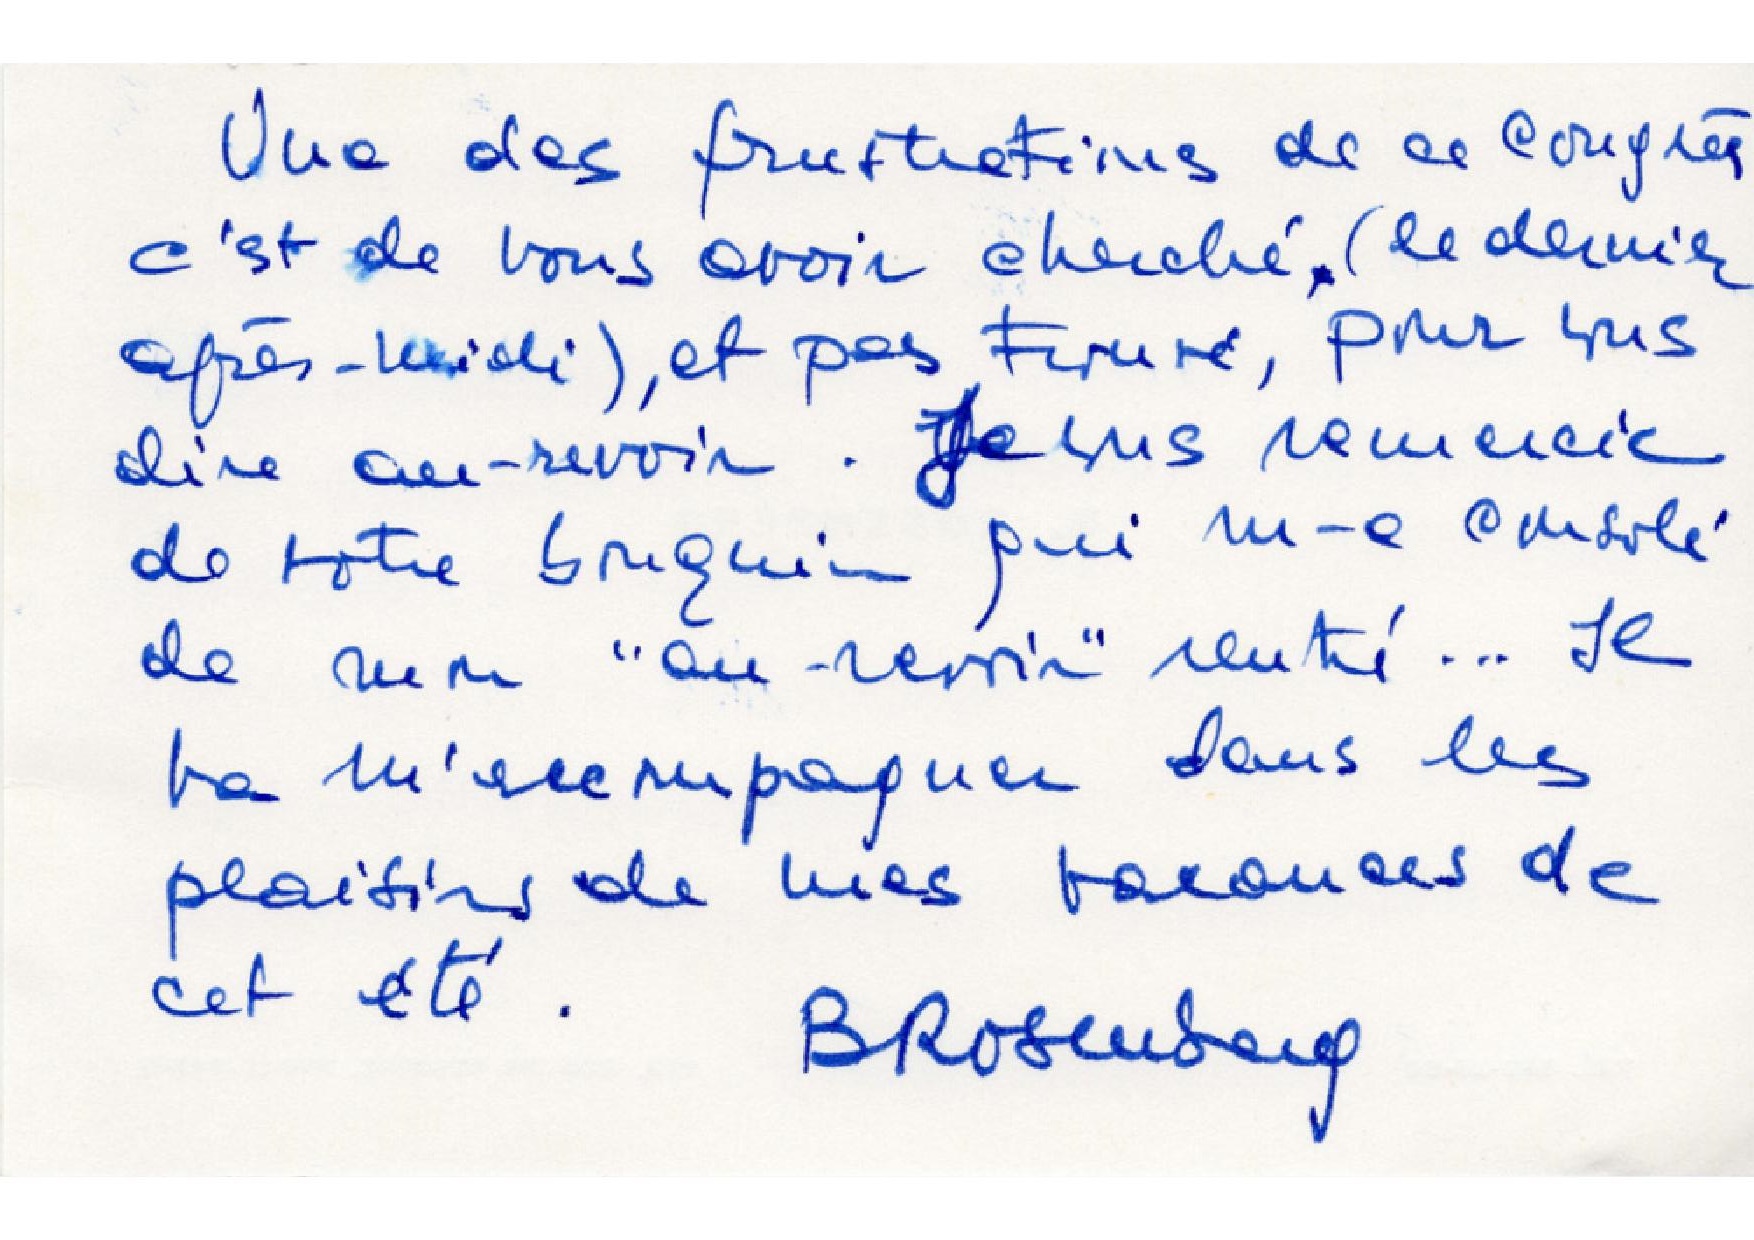 Une des frustrations de ce Congrès
c'est de vous avoir cherché, (le dernier
après-midi), et pas trouvé, pour vous
dire au-revoir. Je vous remercie
de votre bouquin qui m-a consolé
de mon "au-revoir" rentré... Il
va m'accompagner dans les
plaisirs de mes vacances de
cet été.
BRosenberg